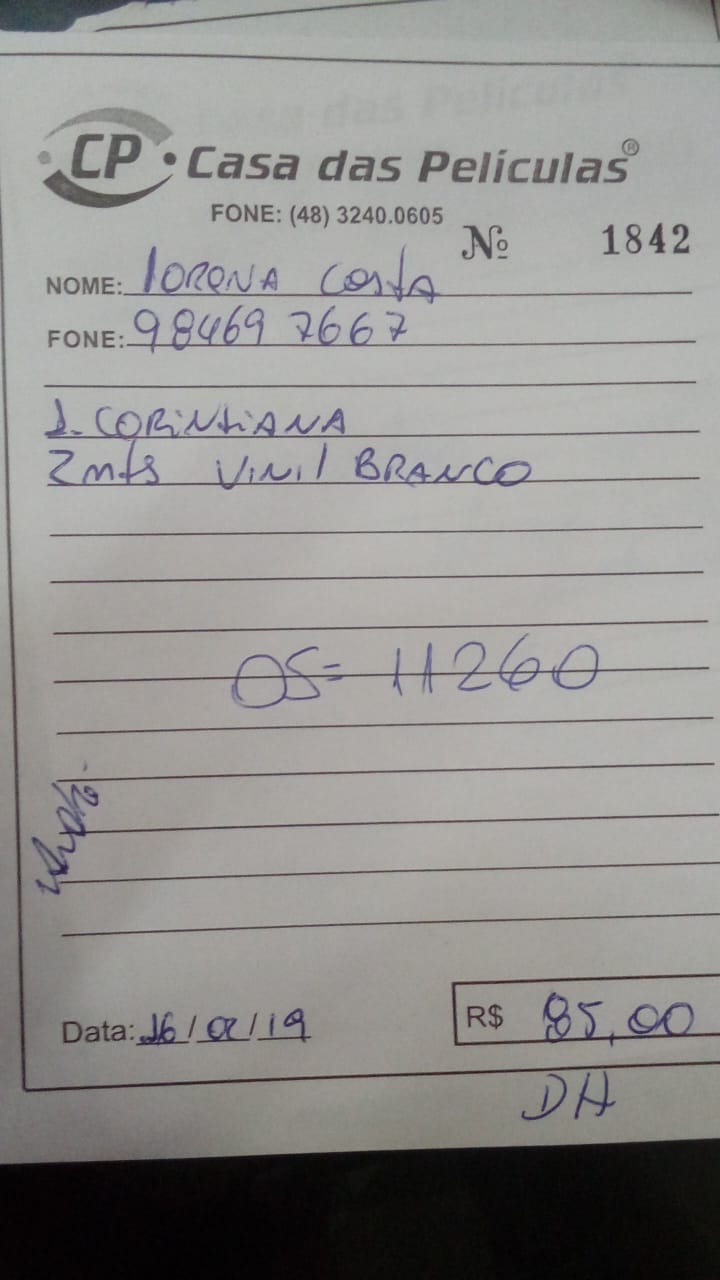 CP Casa das Películas®
FONE: (48) 3240.0605
Nº 1842
NOME: lorena Costa
FONE: 98469 7667
1. CORiNtiANA
2mts ViNil BRANCO
OS= 11260
Data: 16/02/19
R$ 85,00
DH